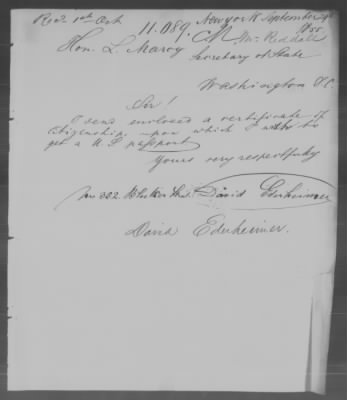 Recd 1st Oct
11.089. New York September
1855
Mr Riddall
Hon. L. Marcy
Secretary of State
Washington D.C.
Sir!
I send enclosed a certificate of
Citizenship upon which I wish to
get a U.S. passport
Yours very respectfully
No 332 Bleeker Str. David Ederheimer
David Ederheimer.